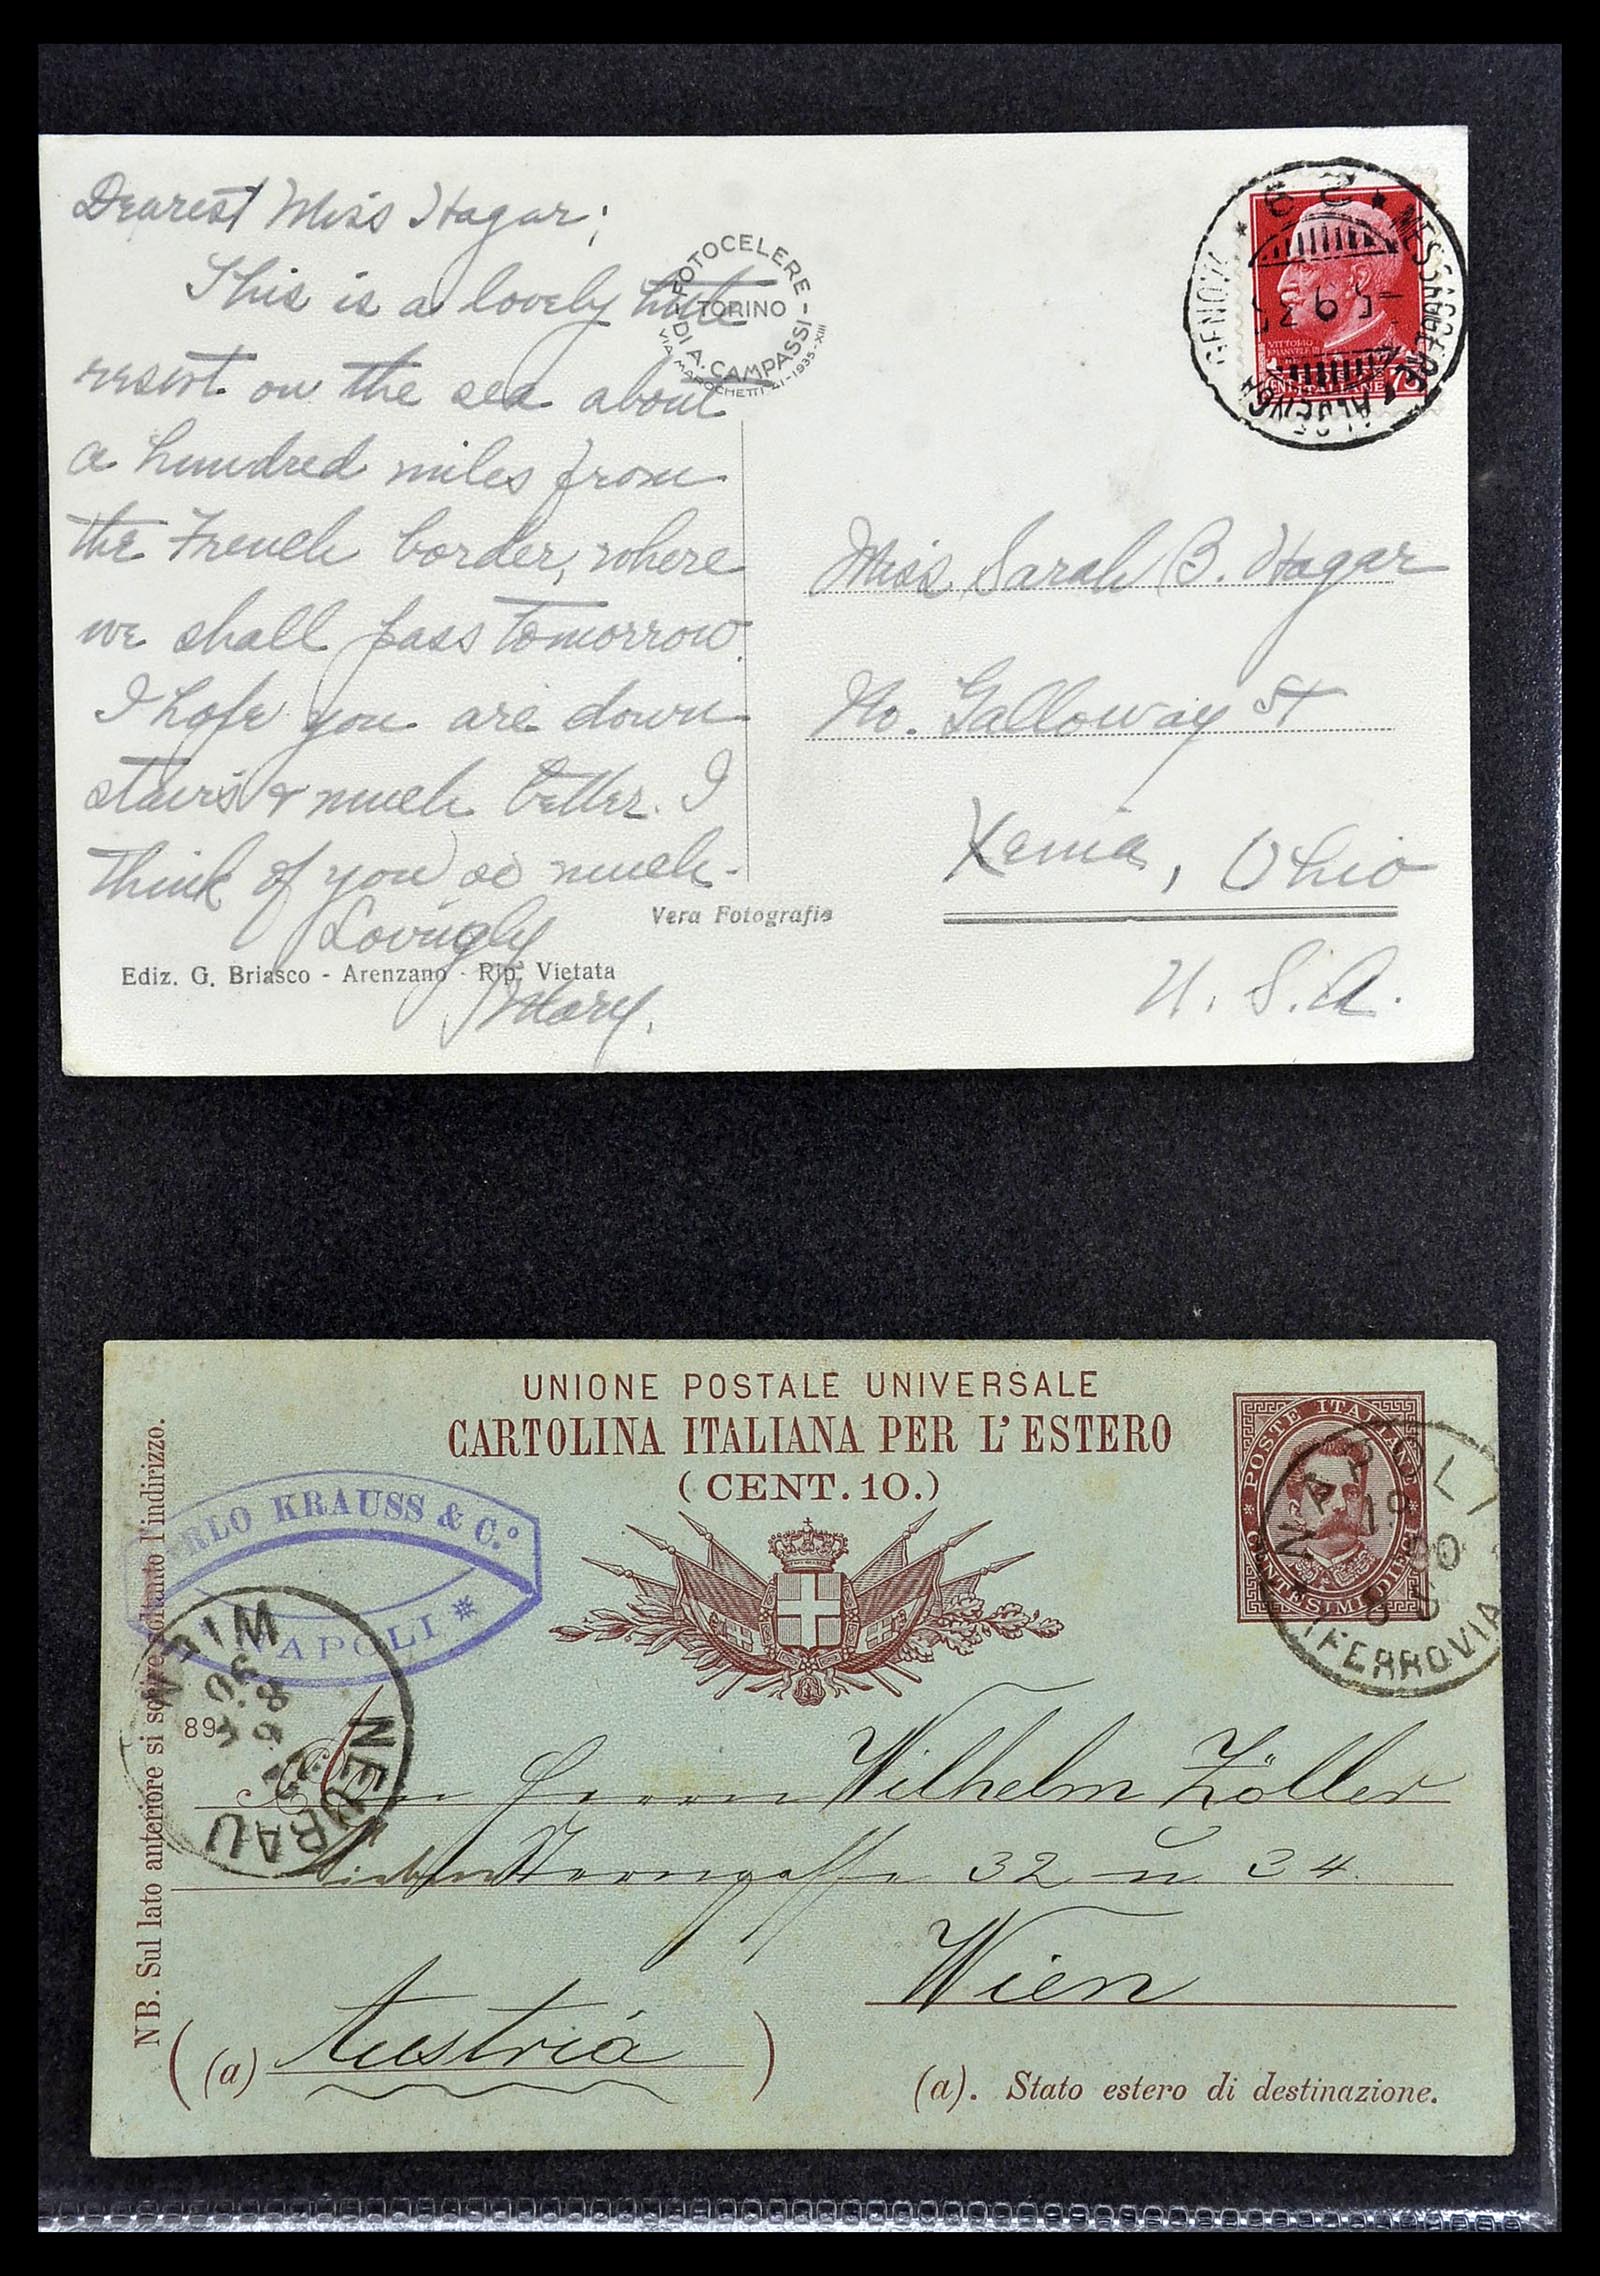 Dearest Miss Hagar;
This is a lovely little
resort on the sea about
a hundred miles from
the French border, where
we shall pass tomorrow.
I hope you are down
stairs & much better. I
think of you so much.
Lovingly
Mary.
FOTOCELERE
TORINO
DI A. CAMPASSI
VIA MAROCHETTI 41-1935-XIII
Vera Fotografia
Ediz. G. Briasco - Arenzano - Rip. Vietata
GENOVA
5 9 35
Miss Sarah B. Hagar
No. Galloway St
Xenia, Ohio
U. S. A.
UNIONE POSTALE UNIVERSALE
CARTOLINA ITALIANA PER L'ESTERO
(CENT. 10.)
POSTE ITALIANE
CENTESIMI DIECI
NAPOLI
FERROVIA
RLO KRAUSS & C.º
APOLI
WIEN
NEUBAU
89
An Herrn Wilhelm Zöller
Siebensterngasse 32 u 34
Wien
(a) Austria
(a). Stato estero di destinazione.
NB. Sul lato anteriore si scrive soltanto l'indirizzo.